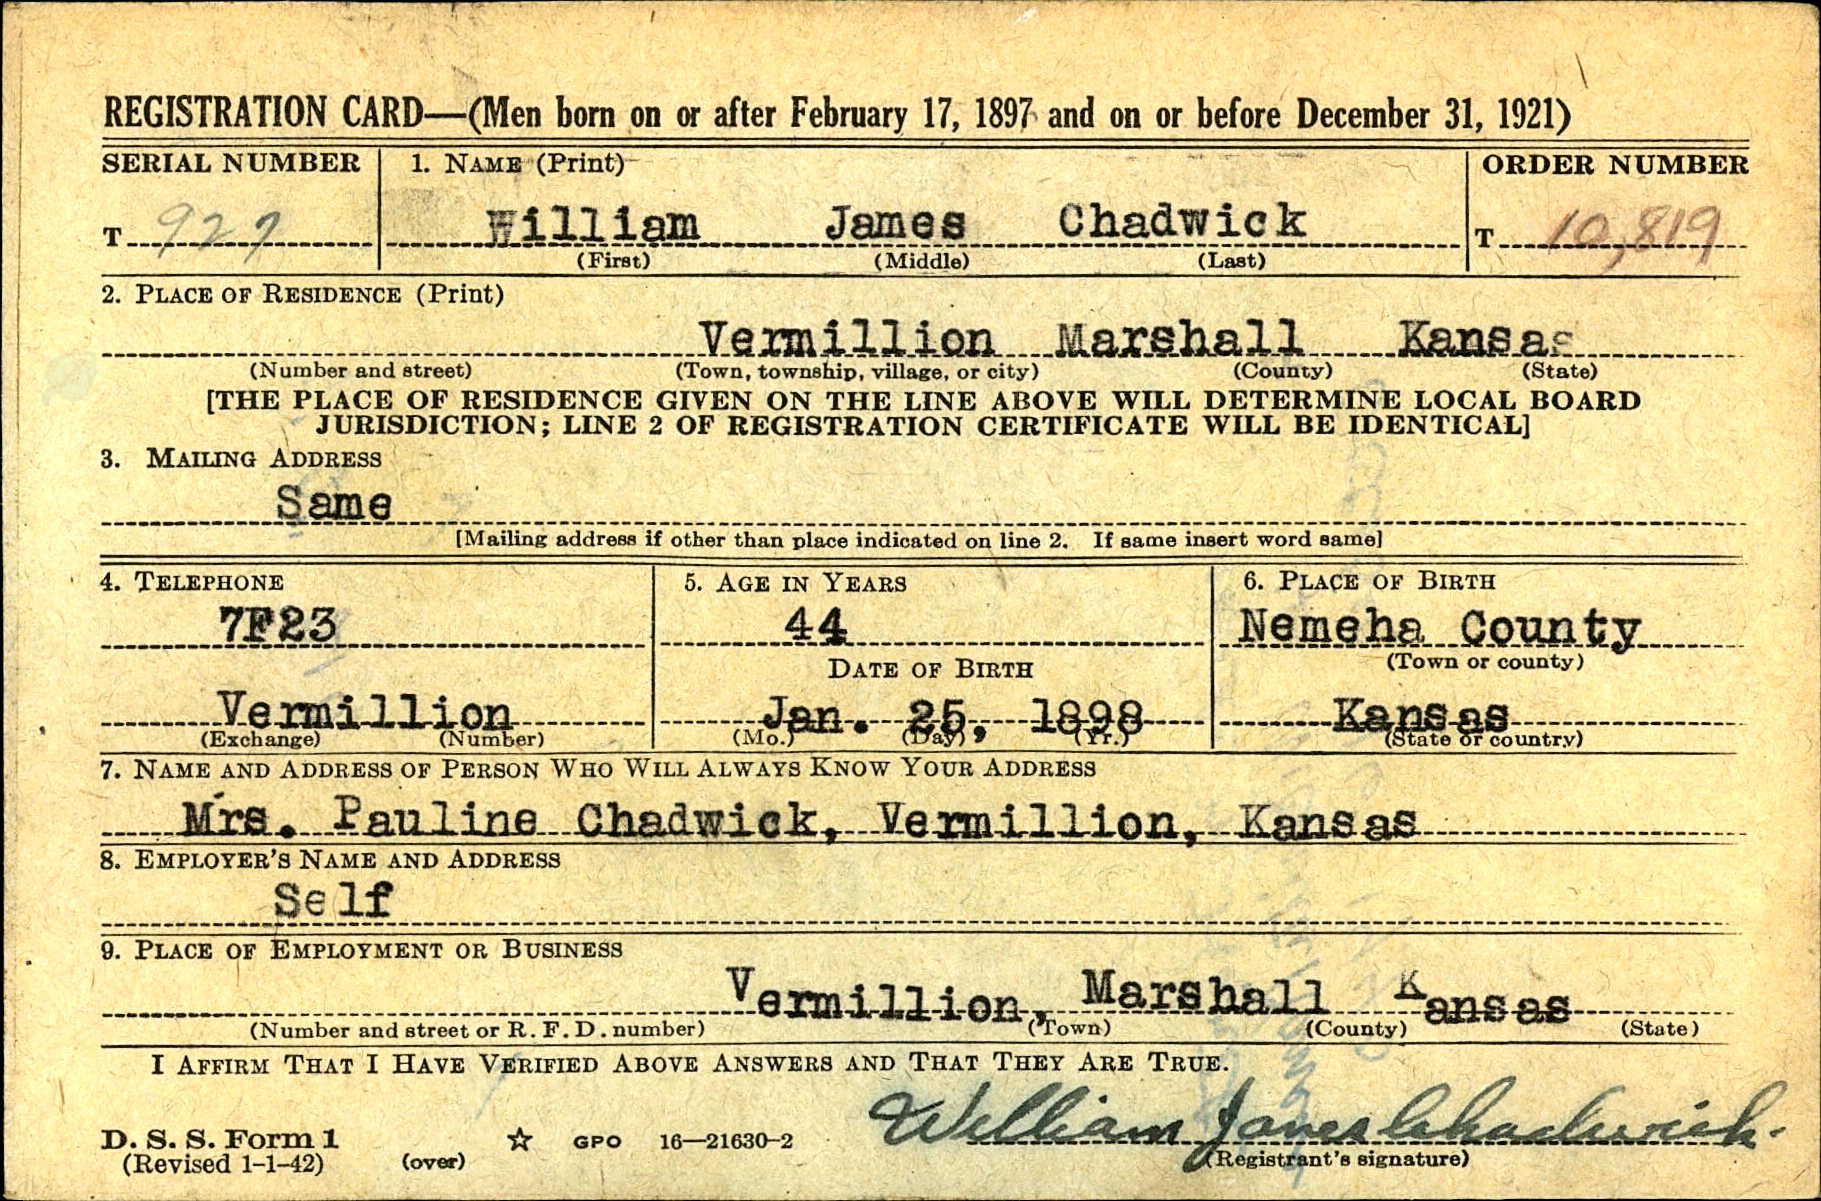 REGISTRATION CARD—(Men born on or after February 17, 1897 and on or before December 31, 1921)
SERIAL NUMBER 1. NAME (Print) ORDER NUMBER
T 927 William James Chadwick T 10,819
(First) (Middle) (Last)
2. PLACE OF RESIDENCE (Print)
Vermillion Marshall Kansas
(Number and street) (Town, township, village, or city) (County) (State)
[THE PLACE OF RESIDENCE GIVEN ON THE LINE ABOVE WILL DETERMINE LOCAL BOARD
JURISDICTION; LINE 2 OF REGISTRATION CERTIFICATE WILL BE IDENTICAL]
3. MAILING ADDRESS
Same
[Mailing address if other than place indicated on line 2. If same insert word same]
4. TELEPHONE 5. AGE IN YEARS 6. PLACE OF BIRTH
7F23 44 Nemeha County
(Town or county)
DATE OF BIRTH
Vermillion Jan. 25, 1898 Kansas
(Exchange) (Number) (Mo.) (Day) (Yr.) (State or country)
7. NAME AND ADDRESS OF PERSON WHO WILL ALWAYS KNOW YOUR ADDRESS
Mrs. Pauline Chadwick, Vermillion, Kansas
8. EMPLOYER'S NAME AND ADDRESS
Self
9. PLACE OF EMPLOYMENT OR BUSINESS
Vermillion, Marshall Kansas
(Number and street or R. F. D. number) (Town) (County) (State)
I AFFIRM THAT I HAVE VERIFIED ABOVE ANSWERS AND THAT THEY ARE TRUE.
William James Chadwick.
D. S. S. Form 1 ☆ GPO 16—21630-2
(Revised 1-1-42) (over) (Registrant's signature)